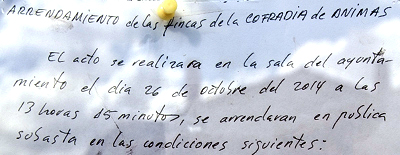 ARRENDAMIENTO de las fincas de la COFRADIA de ANIMAS
EL acto se realizara en la sala del ayunta-
miento el dia 26 de octubre del 2014 a las
13 horas 15 minutos, se arrendaran en publica
subasta en las condiciones siguientes: